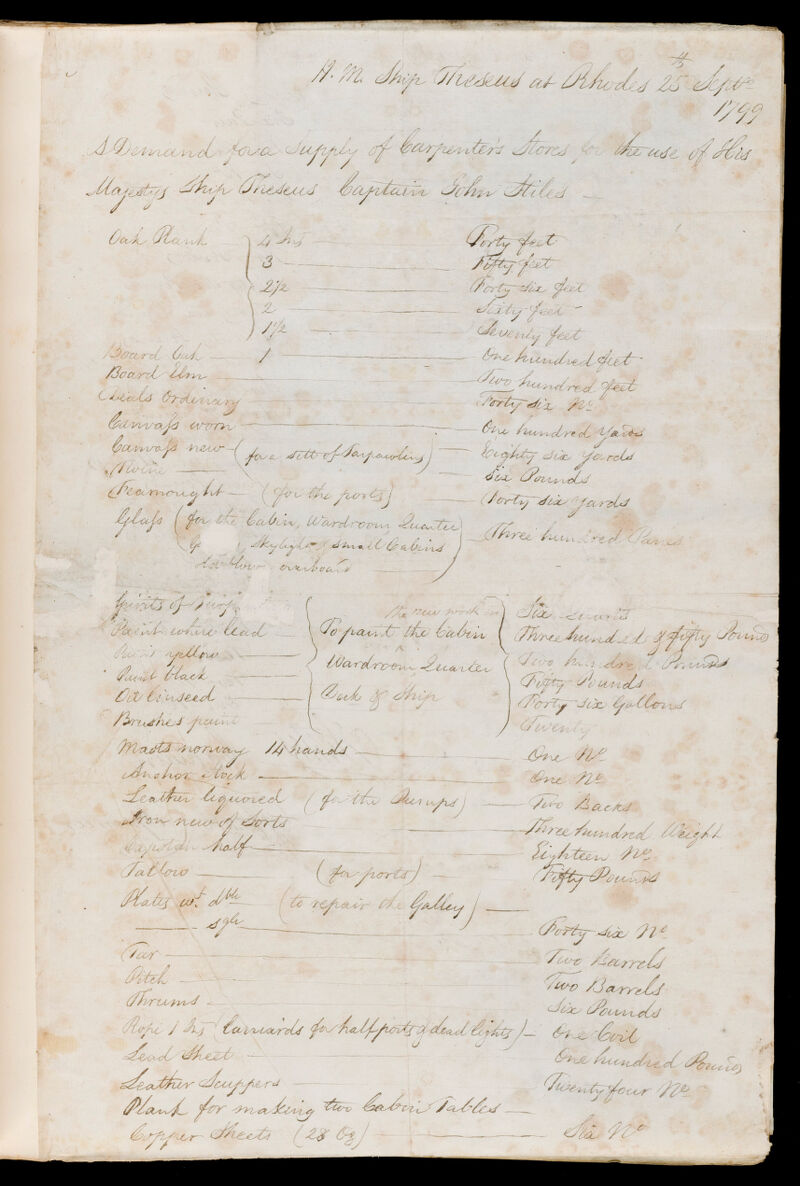 H. M. Ship Theseus at Rhodes 25th Septr
1799
A Demand for a supply of Carpenter's Stores for the use of His
Majestys Ship Theseus Captain John Stiles —
Oak Plank 4 Ins — Forty feet
3 — Fifty feet
2 1/2 — Forty six feet
2 — Sixty feet
1 1/2 — Seventy feet
Board Oak — 1 — One hundred feet
Board Elm — Two hundred feet
Deals Ordinary — Forty six No
Canvass worn — One hundred Yards
Canvass new (for a sett of Tarpawlins) — Eighty six Yards
Twine — Six Pounds
Fearnought — (for the ports) — Forty six Yards
Glass (for the Cabin, Wardroom Quarter
Skylights & small Cabins — Three hundred Panes
overboard
Spirits of — Six
the new work in
Paint white lead — To paint the Cabin Three hundred & fifty Pounds
Paint yellow — Wardroom Quarter Two hundred Pounds
Paint black — Fifty Pounds
Oil Linseed — Deck & Ship Forty six Gallons
Brushes paint — Twenty
Masts norway 14 hands — One No
Anchor stock — One No
Leather liquored (for the Pumps) — Two Backs
Iron new of Sorts — Three hundred Weight
half — Eighteen No
Tallow — (for ports) — Fifty Pounds
Plates wt dble (to repair the Galley) —
— sgle — Forty six No
Tar — Two Barrels
Pitch — Two Barrels
Thrums — Six Pounds
Rope 1 In (Lanniards for halfports & dead lights) — One Coil
Lead Sheet — One hundred Pounds
Leather Scuppers — Twenty four No
Plank for making two Cabin Tables —
Copper Sheets (28 Oz) — Six No